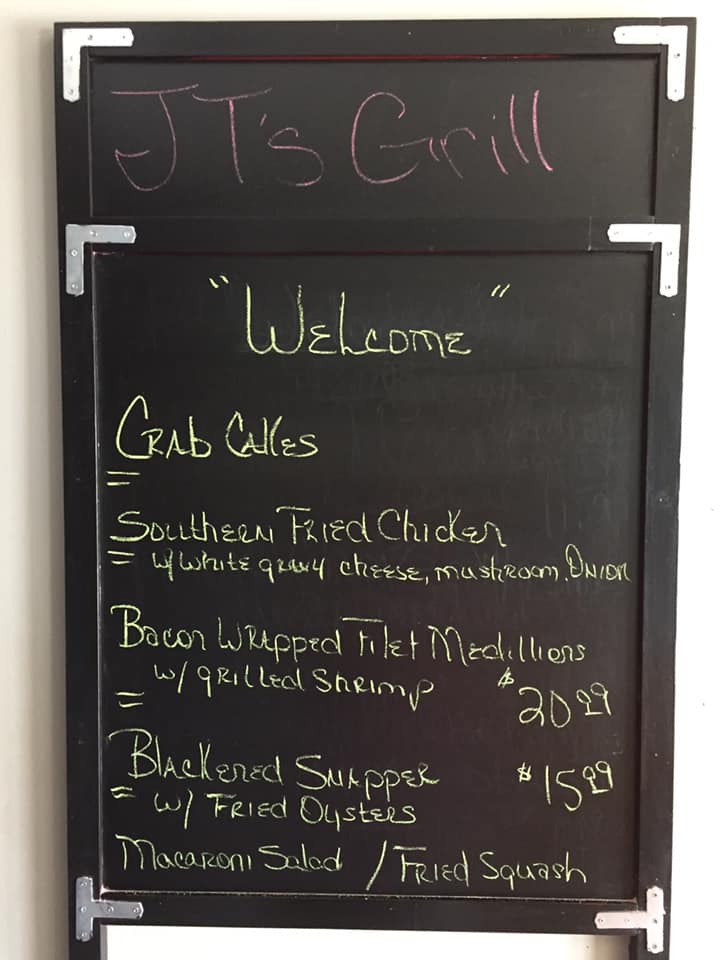 JT's Grill
"Welcome"
Crab Cakes
=
Southern Fried Chicken
= w/ white gravy cheese, mushroom, Onion
Bacon Wrapped Filet Medillions
w/ grilled Shrimp
= $20.99
Blackened Snapper $15.99
= w/ Fried Oysters
Macaroni Salad / Fried Squash